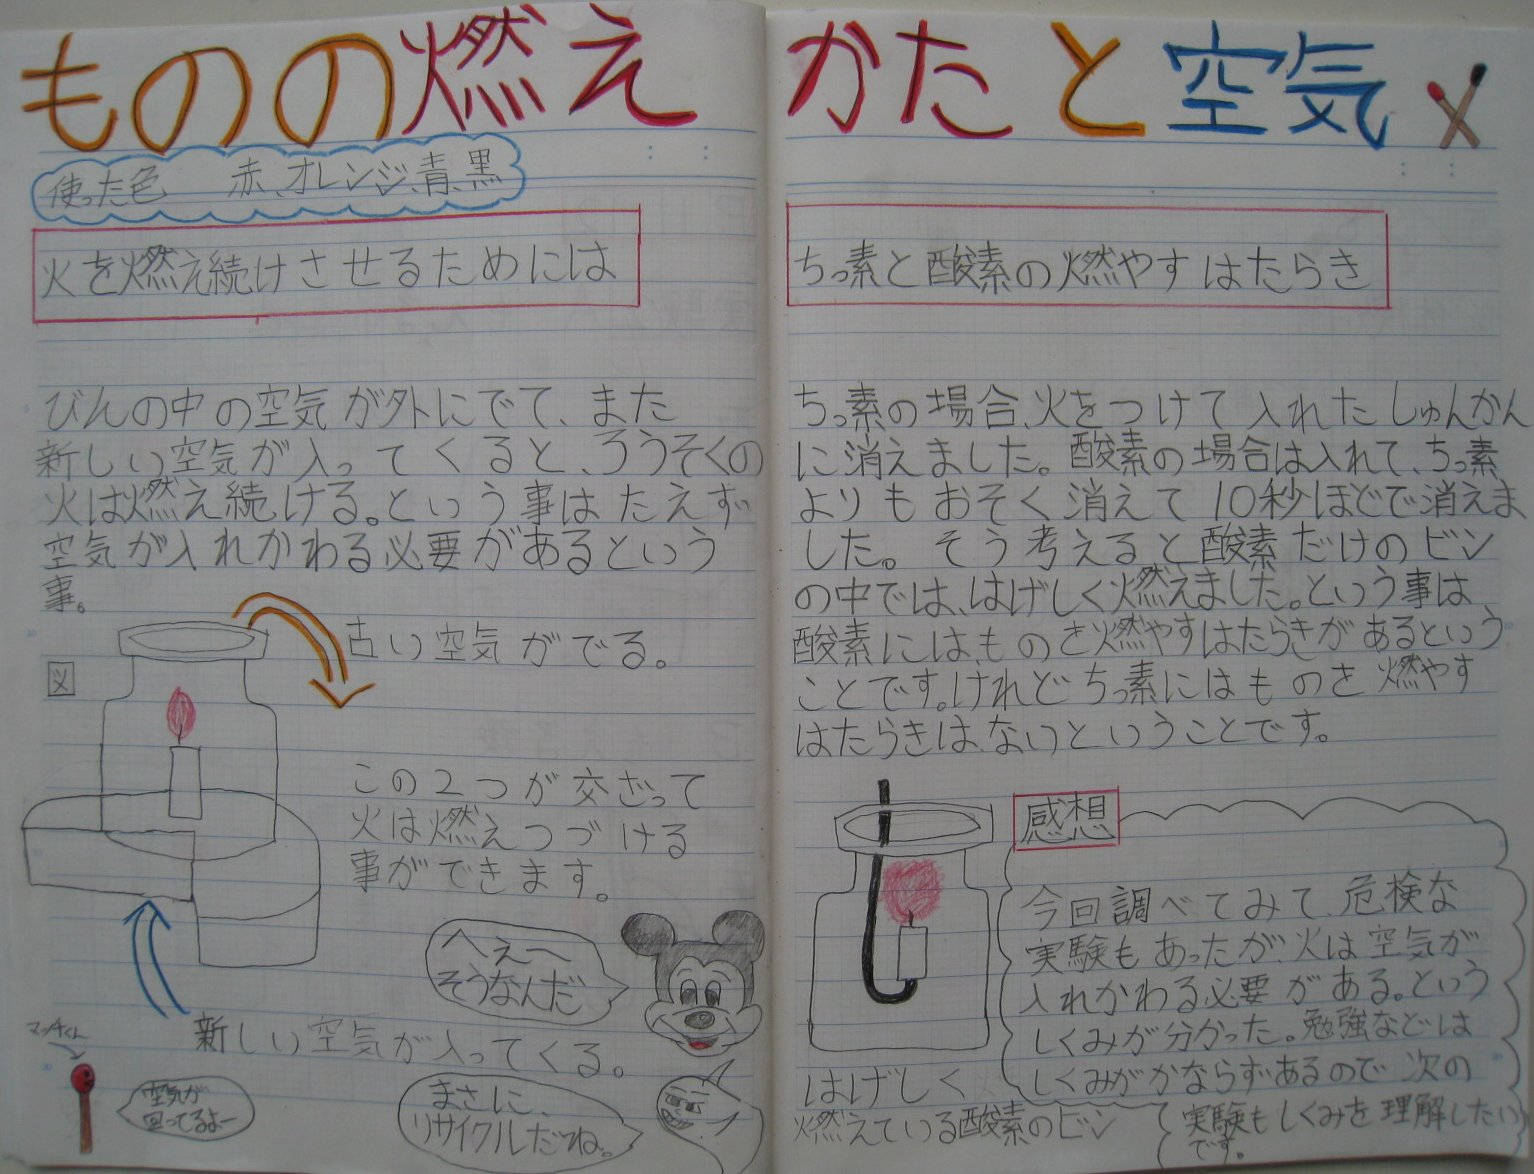 ものの燃えかたと空気
使った色　赤、オレンジ、青、黒
火を燃え続けさせるためには
びんの中の空気が外にでて、また
新しい空気が入ってくると、ろうそくの
火は燃え続ける。という事はたえず
空気が入れかわる必要があるという
事。
図
古い空気がでる。
この2つが交ざって
火は燃えつづける
事ができます。
へぇ〜
そうなんだ
新しい空気が入ってくる。
マッチくん
空気が
回ってるよー
まさに、
リサイクルだね。
ちっ素と酸素の燃やすはたらき
ちっ素の場合、火をつけて入れたしゅんかん
に消えました。酸素の場合は入れて、ちっ素
よりもおそく消えて10秒ほどで消えま
した。そう考えると酸素だけのビン
の中では、はげしく燃えました。という事は
酸素には、ものを燃やすはたらきがあるという
ことです。けれどちっ素にはものを燃やす
はたらきは、ないということです。
はげしく
燃えている酸素のビン
感想
今回調べてみて、危検な
実験もあったが、火は空気が
入れかわる必要がある。という
しくみが分かった。勉強などは
しくみがかならずあるので次の
実験もしくみを理解したい
です。